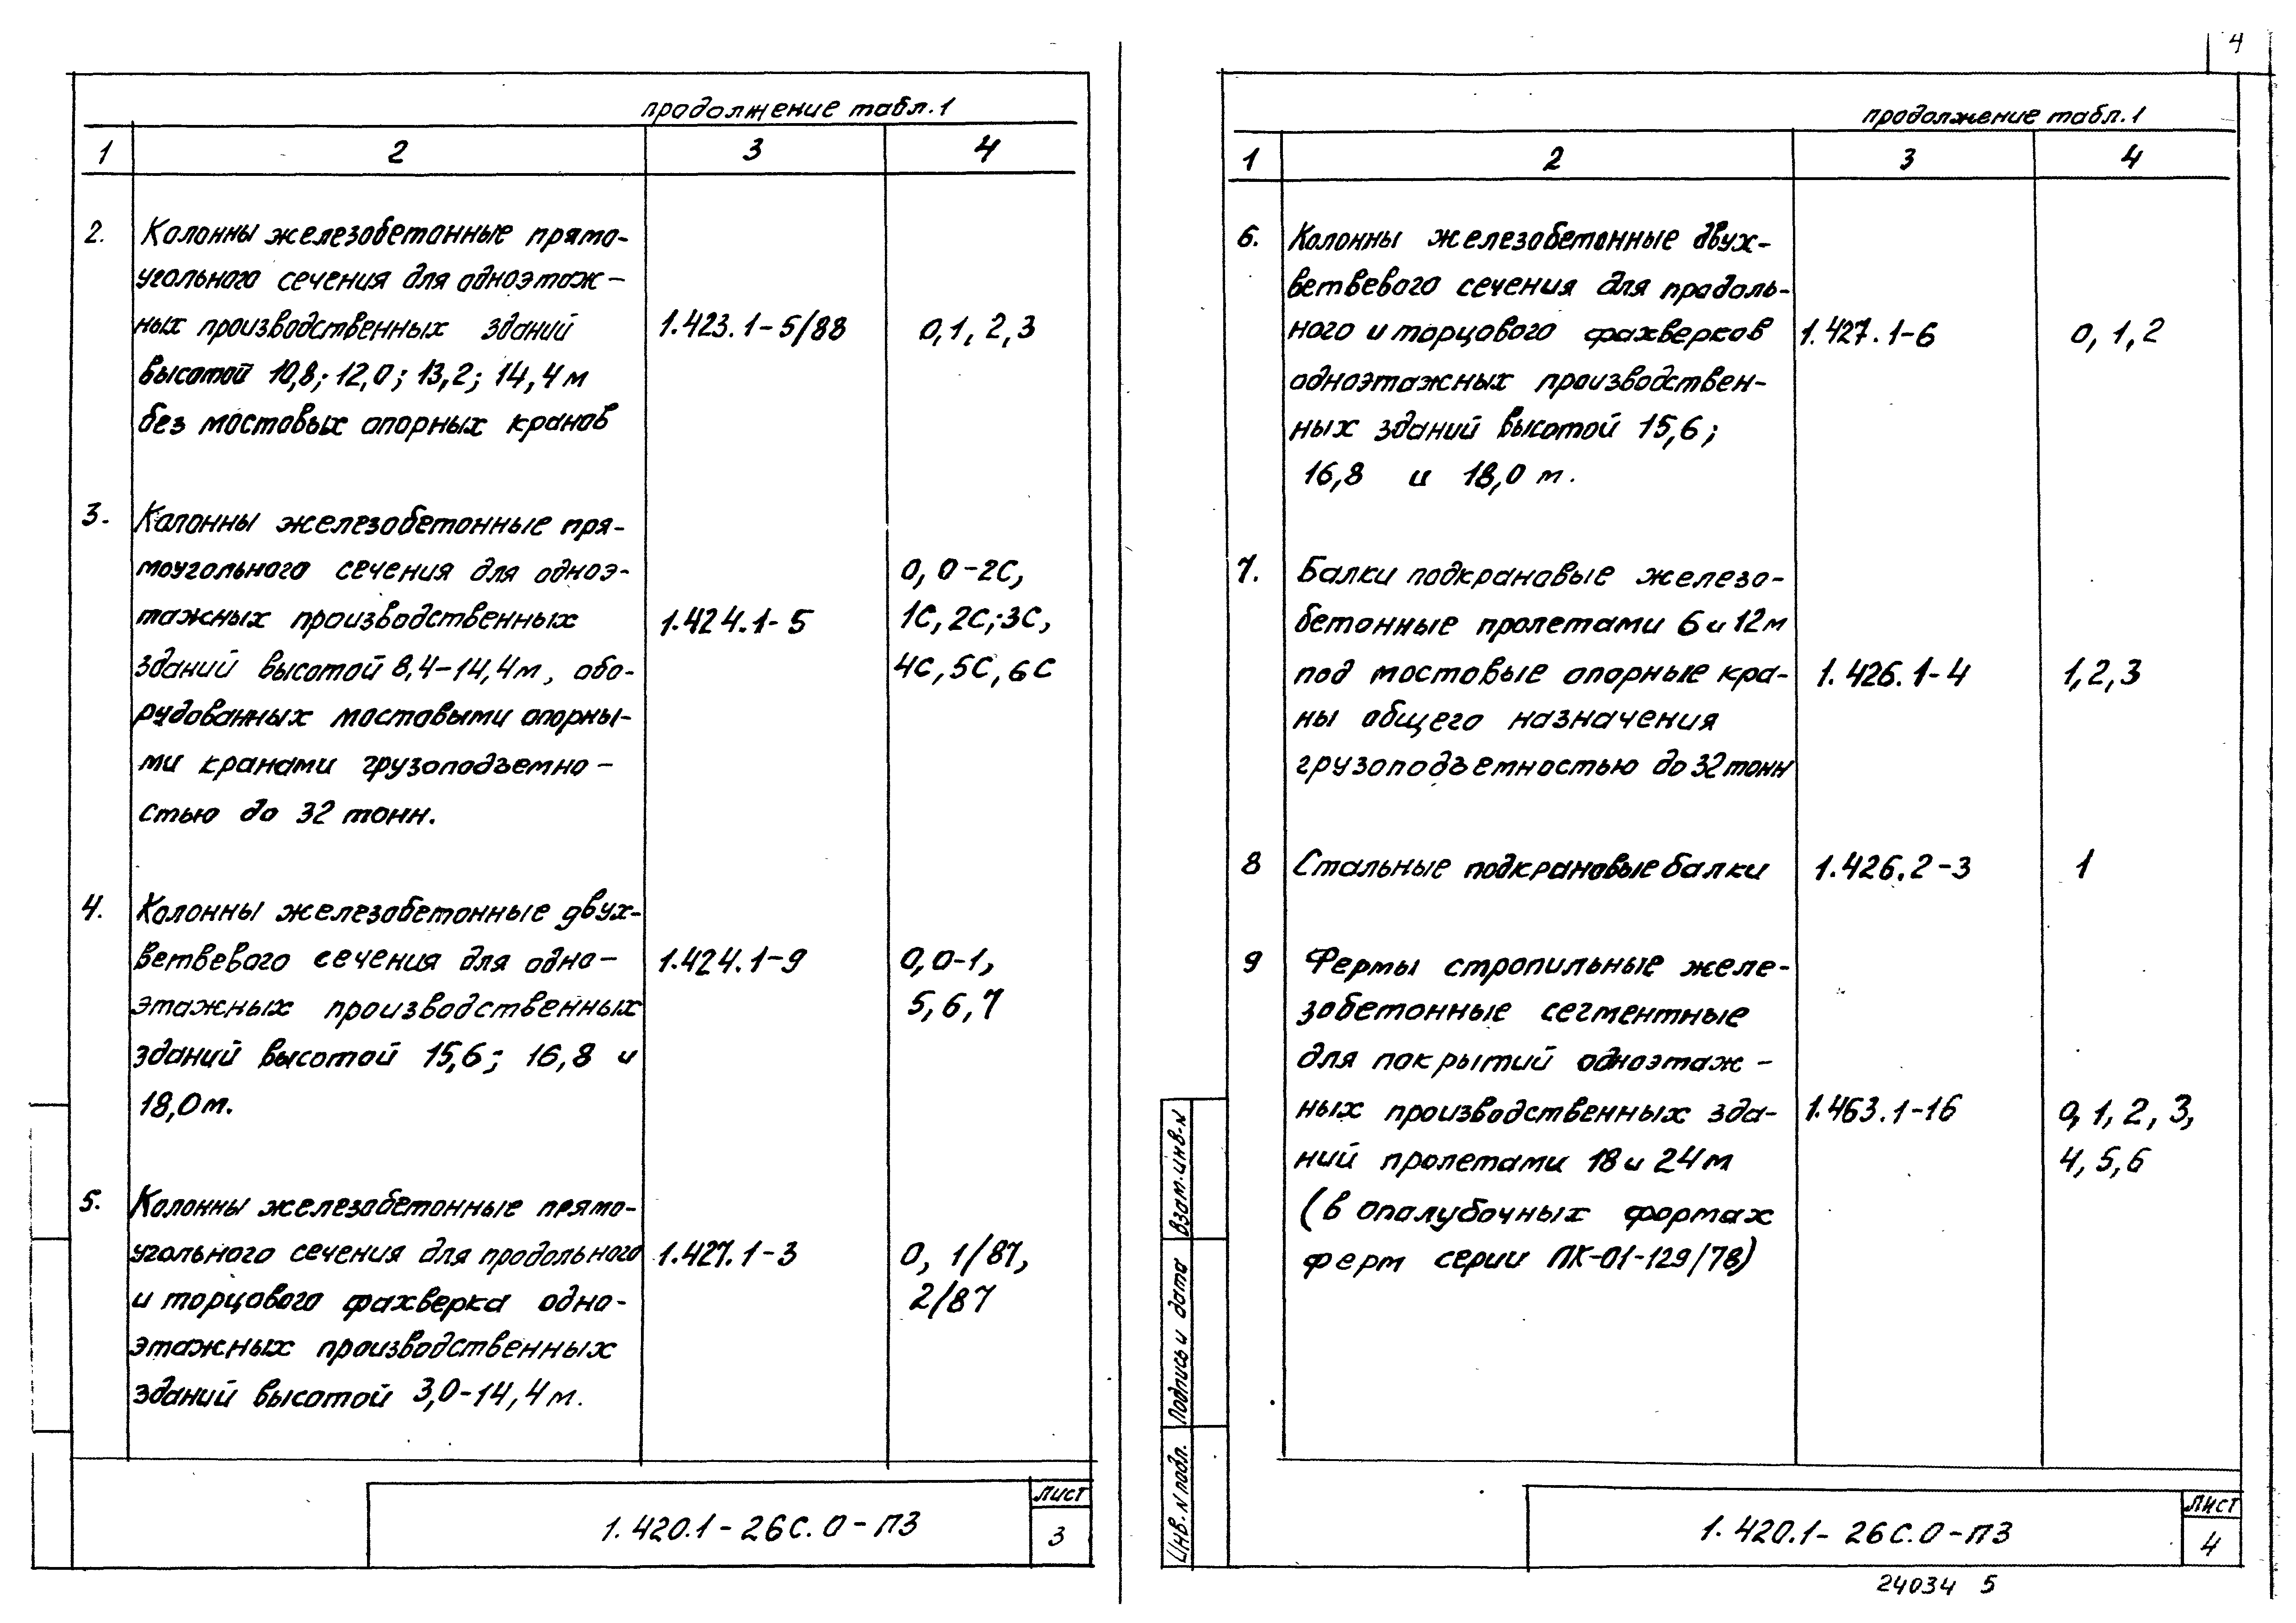 продолжение табл.1
1 2 3 4
2. Колонны железобетонные прямо-
угольного сечения для одноэтаж-
ных производственных зданий 1.423.1-5/88 0,1,2,3
высотой 10,8; 12,0; 13,2; 14,4м
без мостовых опорных кранов
3. Колонны железобетонные пря-
моугольного сечения для одноэ- 0, 0-2С,
тажных производственных 1.424.1-5 1С, 2С; 3С,
зданий высотой 8,4-14,4м, обо- 4С, 5С, 6С
рудованных мостовыми опорны-
ми кранами грузоподъемно-
стью до 32 тонн.
4. Колонны железобетонные двух-
ветвевого сечения для одно- 1.424.1-9 0,0-1,
этажных производственных 5,6,7
зданий высотой 15,6; 16,8 и
18,0м.
5. Колонны железобетонные прямо-
угольного сечения для продольного 1.427.1-3 0, 1/87,
и торцового фахверка одно- 2/87
этажных производственных
зданий высотой 3,0-14,4м.
1.420.1-26С.0-ПЗ
Лист
3
4
продолжение табл.1
1 2 3 4
6. Колонны железобетонные двух-
ветвевого сечения для продоль-
ного и торцового фахверков 1.427.1-6 0, 1, 2
одноэтажных производствен-
ных зданий высотой 15,6;
16,8 и 18,0 м.
7. Балки подкрановые железо-
бетонные пролетами 6 и 12м
под мостовые опорные кра- 1.426.1-4 1,2,3
ны общего назначения
грузоподъемностью до 32 тонн
8 Стальные подкрановые балки 1.426.2-3 1
9 Фермы стропильные желе-
зобетонные сегментные
для покрытий одноэтаж-
ных производственных зда- 1.463.1-16 0, 1, 2, 3,
ний пролетами 18 и 24м 4, 5, 6
(в опалубочных формах
ферм серии ПК-01-129/78)
Взам. инв. N
Подпись и дата
Инв. N подл.
1.420.1-26С.0-ПЗ
Лист
4
24034 5